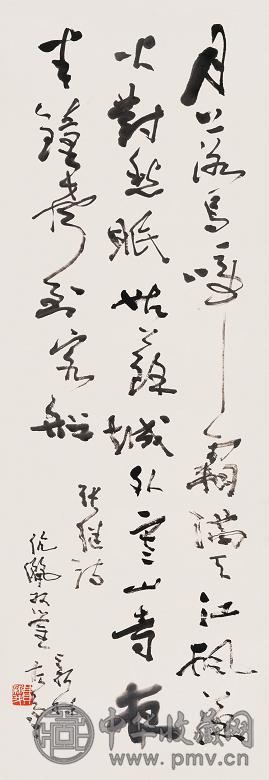 月落烏啼霜滿天江楓漁
火對愁眠姑蘇城外寒山寺夜
半鐘聲到客船
張繼詩
伉儷
中华收藏网
www.pmv.cn